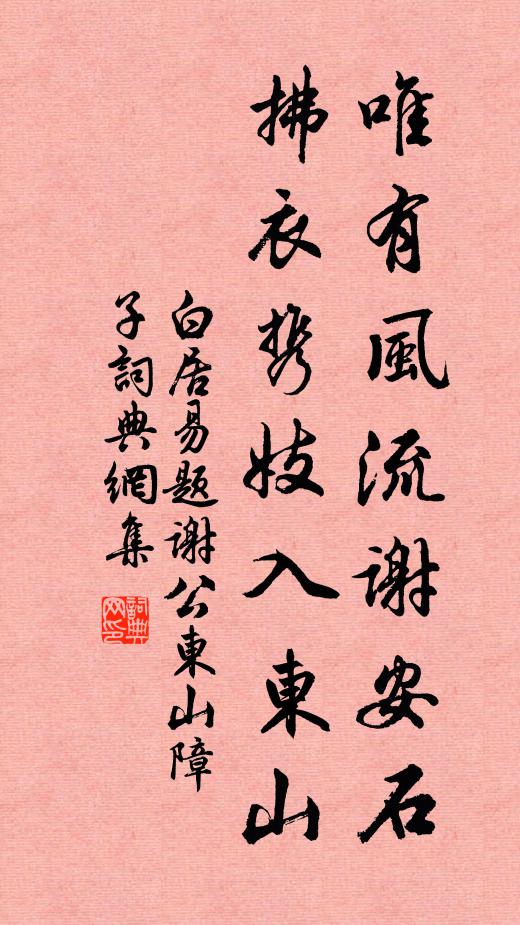 唯有風流謝安石
拂衣携妓入東山
白居易題謝公東山障
子詞典網集
詞典网印